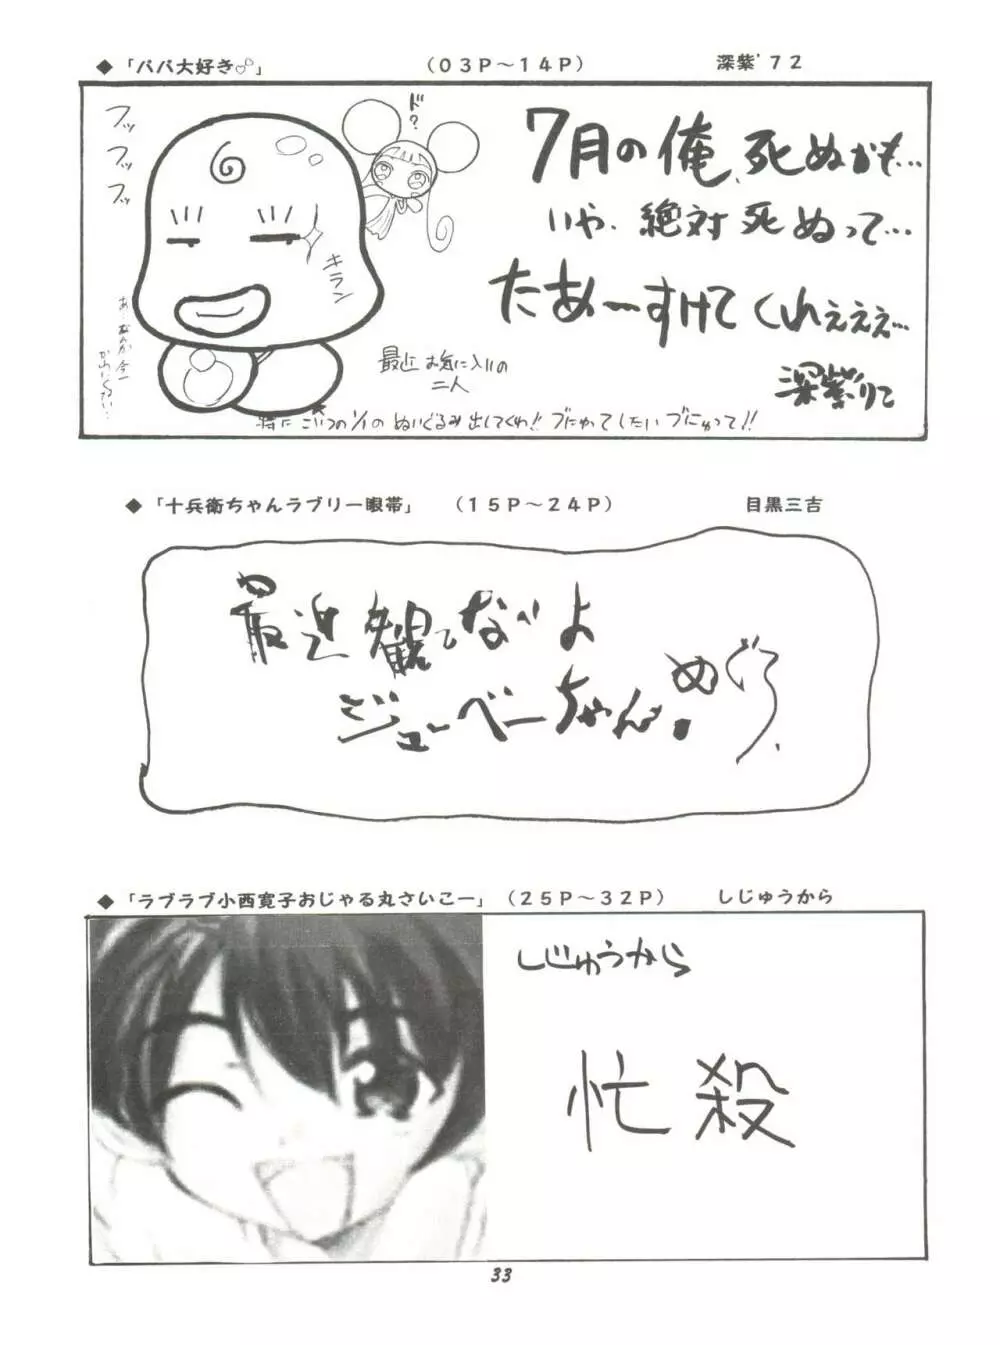 ◆「パパ大好き♂」 (03P~14P) 深紫'72
フッ
フッ
フッ
ド?
キラン
7月の俺、死ぬかも…
いや、絶対死ぬって…
たあーすけてくれぇぇぇ…
深紫りこ
最近お気に入りの
二人
特にこいつの1/1のぬいぐるみ出してくれ!!ブにゅってしたいブにゅって!!
◆「十兵衛ちゃんラブリー眼帯」 (15P~24P) 目黒三吉
最近観てないよ
ジューベーちゃん。めぐろ
◆「ラブラブ小西寛子おじゃる丸さいこー」(25P~32P) しじゅうから
しじゅうから
忙殺
33